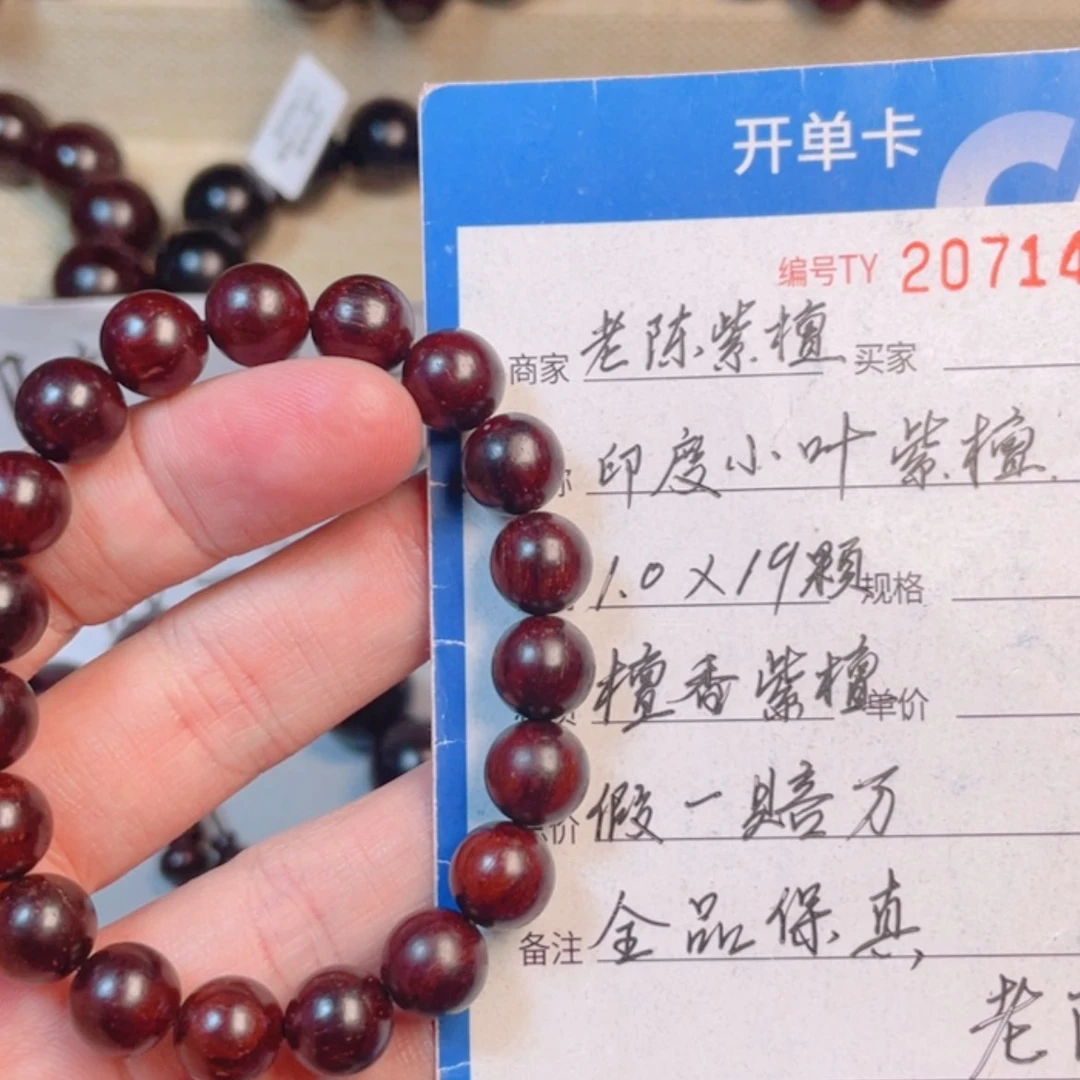 开单卡
编号TY 20714
商家 老陈紫檀 买家
称 印度小叶紫檀
1.0×19颗 规格
檀香紫檀 单价
价 假一赔万
备注 全品保真
老